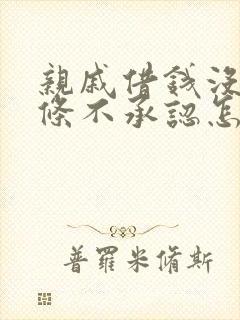 親戚借錢沒
條不承認怎
普羅米脩斯